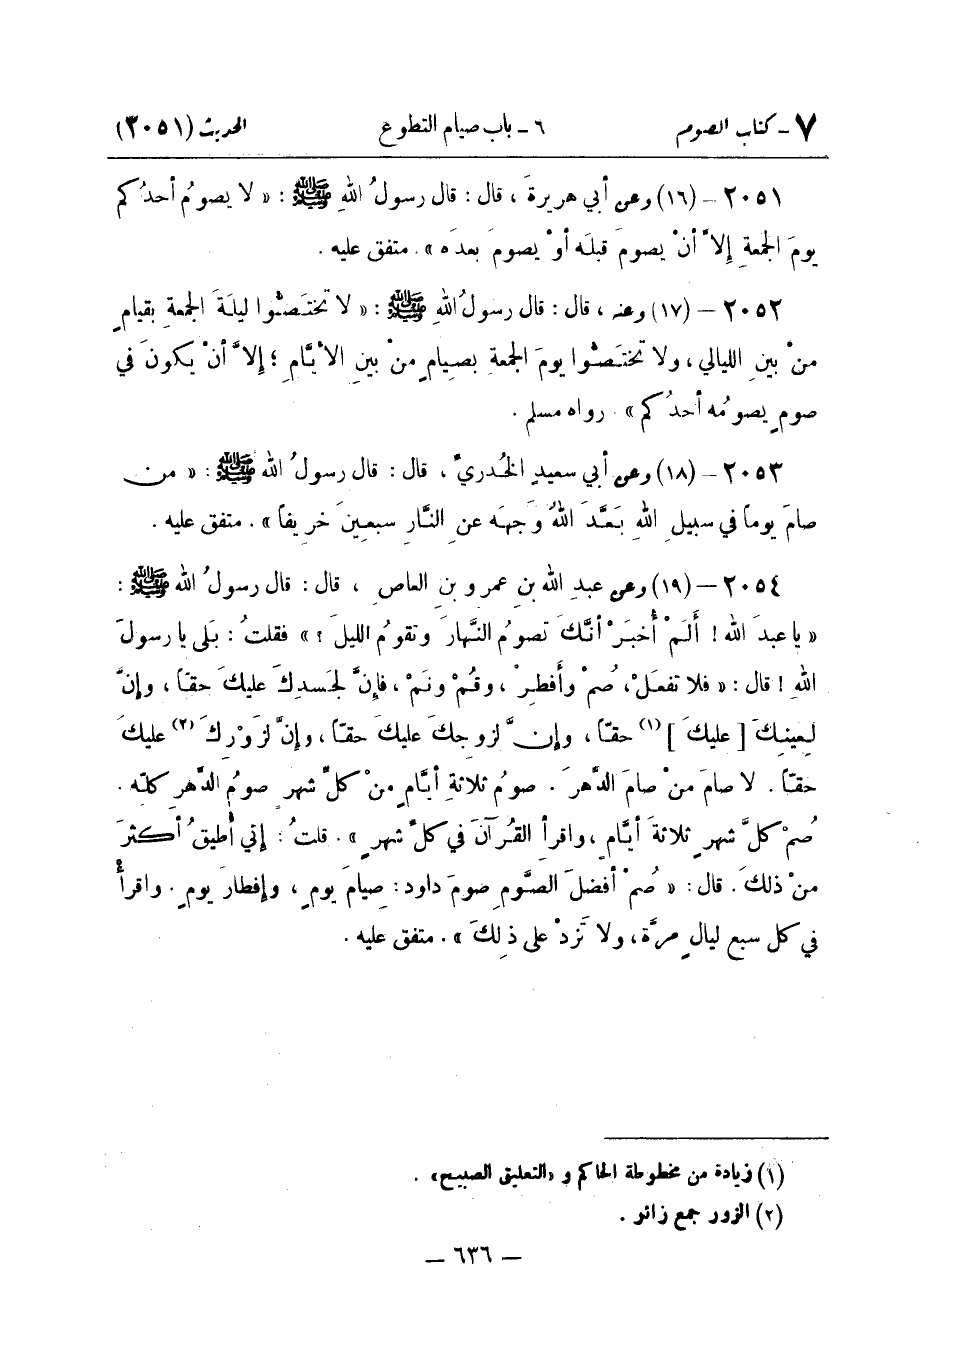 ٧ - كتاب الصوم ٦ - باب صيام التطوع الحديث (٢٠٥١)
٢٠٥١ - (١٦) وعن أبي هريرةَ ، قال : قال رسولُ اللهِ ﷺ : « لا يصومُ أحدُكم
يومَ الجمعةِ إلاَّ أنْ يصومَ قبلَه أوْ يصومَ بعدَه » . متفق عليه .
٢٠٥٢ - (١٧) وعنه ، قال : قال رسولُ اللهِ ﷺ : « لا تختَصُّوا ليلَةَ الجمعةِ بقيامٍ
منْ بينِ الليالي ، ولا تختَصُّوا يومَ الجمعةِ بصيامٍ منْ بينِ الأيَّامِ ؛ إلاَّ أنْ يكونَ في
صومٍ يصومُه أحدُكم » . رواه مسلم .
٢٠٥٣ - (١٨) وعن أبي سعيدٍ الخُدريِّ ، قال : قال رسولُ الله ﷺ : « من
صامَ يوماً في سبيلِ اللهِ بَعَّدَ اللهُ وَجهَه عنِ النَّارِ سبعينَ خريفاً » . متفق عليه .
٢٠٥٤ - (١٩) وعن عبدِ الله بنِ عمرِو بنِ العاصِ ، قال : قال رسولُ الله ﷺ :
« يا عبدَ الله ! أَلَمْ أُخبَرْ أنَّكَ تصومُ النَّهارَ وتقومُ الليلَ ؟ » فقلتُ : بَلى يا رسولَ
اللهِ ! قال : « فلا تفعَلْ، صُمْ وأَفطِرْ ، وقُمْ ونَمْ ، فإنَّ لجَسدِكَ عليكَ حقّاً ، وإنَّ
لِعينِكَ [ عليكَ ] (١) حقّاً ، وإنَّ لزوجِكَ عليكَ حقّاً ، وإنَّ لزَوْرِكَ (٢) عليكَ
حقّاً . لا صامَ منْ صامَ الدَّهرَ . صومُ ثلاثةِ أيَّامٍ منْ كلِّ شهرٍ صومُ الدَّهرِ كلِّه .
صُمْ كلَّ شهرٍ ثلاثةَ أيَّامٍ ، واقرأ القُرآنَ في كلِّ شهرٍ » . قلتُ : إني أُطيقُ أكثرَ
منْ ذلكَ . قال : « صُمْ أفضلَ الصَّومِ صومَ داود : صيامَ يومٍ ، وإفطارَ يومٍ . واقرأْ
في كل سبع ليالٍ مرَّة ، ولا تَزِدْ على ذلِكَ » . متفق عليه .
(١) زيادة من مخطوطة الحاكم و «التعليق الصبيح» .
(٢) الزور جمع زائر .
— ٦٣٦ —